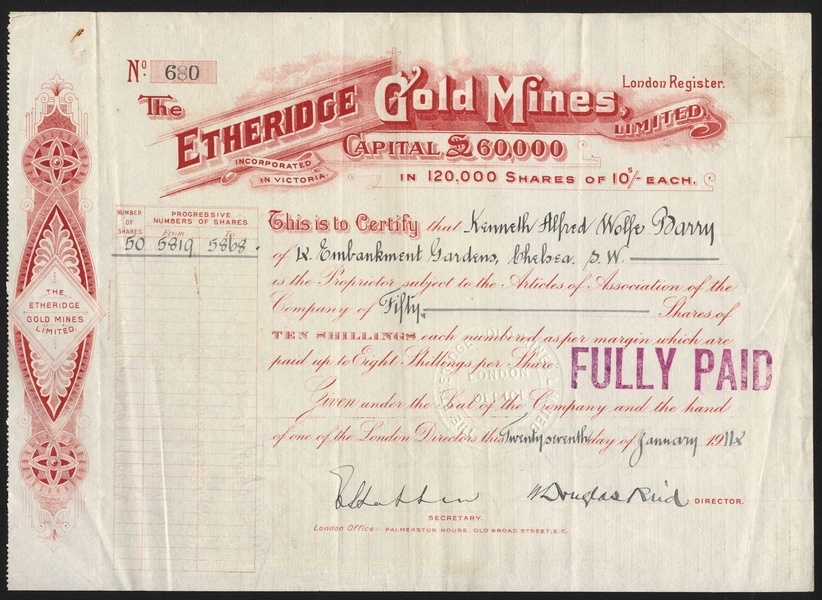 Nº 680
London Register.
The
ETHERIDGE Gold Mines, LIMITED.
INCORPORATED
IN VICTORIA.
CAPITAL £60,000
IN 120,000 SHARES OF 10s/- EACH.
NUMBER OF SHARES
PROGRESSIVE NUMBERS OF SHARES
From To
50 5819 5868.
THE
ETHERIDGE
GOLD MINES
LIMITED.
This is to Certify that Kenneth Alfred Wolfe Barry
of Embankment Gardens, Chelsea. S.W.
is the Proprietor subject to the Articles of Association of the
Company of Fifty Shares of
TEN SHILLINGS each numbered as per margin which are
paid up to Eight Shillings per Share.
FULLY PAID
Given under the Seal of the Company and the hand
of one of the London Directors this Twenty seventh day of January 191
Douglas Reid DIRECTOR.
SECRETARY.
London Office:- PALMERSTON HOUSE, OLD BROAD STREET, E.C.